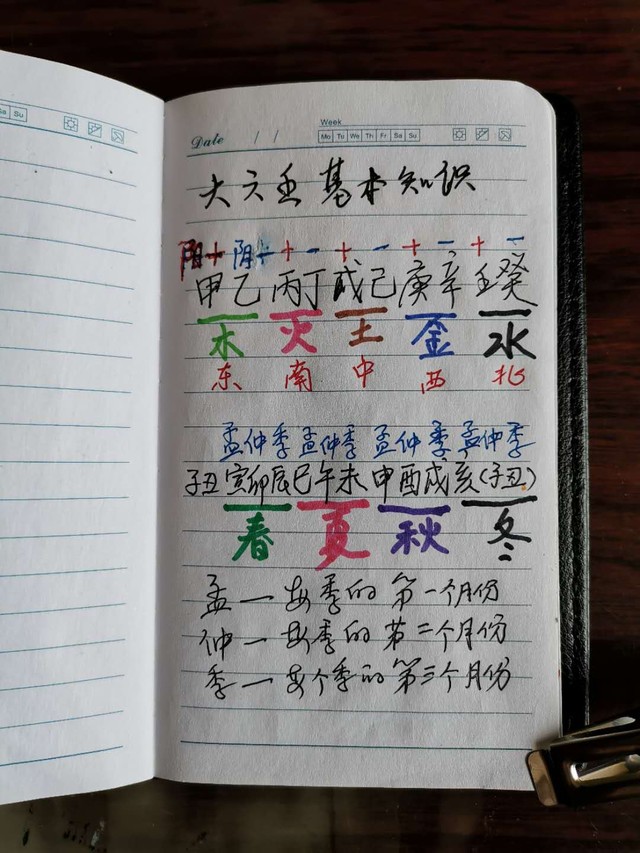 Sa Su
Week
Date / / Mo Tu We Th Fr Sa Su
大六壬基本知识
阳+ 阴- + - + - + - + -
甲乙 丙丁 戊己 庚辛 壬癸
木 火 土 金 水
东 南 中 西 北
孟仲季 孟仲季 孟仲季 孟仲季
子丑寅卯辰巳午未申酉戌亥(子丑)
春 夏 秋 冬
孟一每季的第一个月份
仲一每季的第二个月份
季一每个季的第三个月份